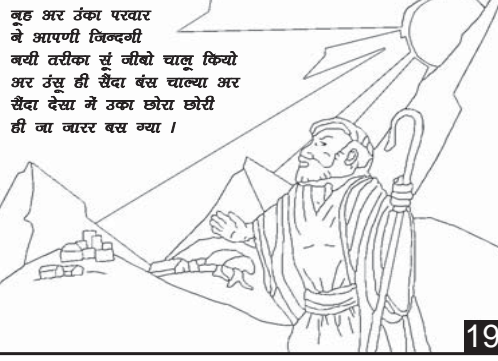 नूह अर उंका परवार
ने आपणी जिन्दगी
नयी तरीका सूं जीबो चालू कियो
अर उंसू ही सैंदा बंस चाल्या अर
सैंदा देसा में उका छोरा छोरी
ही जा जारर बस ग्या ।
19